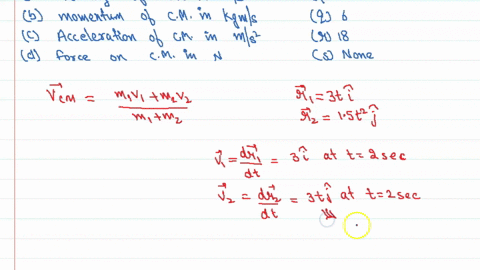 (b) momentum of C.M. in kgm/s (q) 6
(c) Acceleration of CM in m/s² (r) 18
(d) Force on C.M. in N (s) None
V⃗cm = m₁v₁+m₂v₂ / m₁+m₂
r⃗₁ = 3t î
r⃗₂ = 1.5t² ĵ
v⃗₁ = dr⃗₁/dt = 3î at t=2 sec
v⃗₂ = dr⃗₂/dt = 3tĵ at t=2 sec